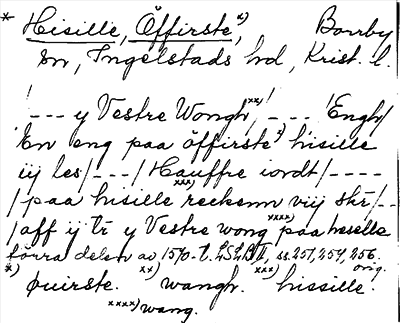 * Hisille, Öffirste, x) Borrby
sn, Ingelstads hd, Krist. l.
/--- y Vestre Wongh xx)/--- /Engh/
En eng paa öffirste x) hisille
iij les/---/Hauffre iordt/----
/paa hisille xxx) reckenn viij skr/--
/aff ij tr y Vestre wong xxxx) paa heselle
förra delen av 1570-t. LSLBII, ss. 257, 259, 256.
x) øuirste. xx) wangh. xxx) hissille. orig.
xxxx) wang.